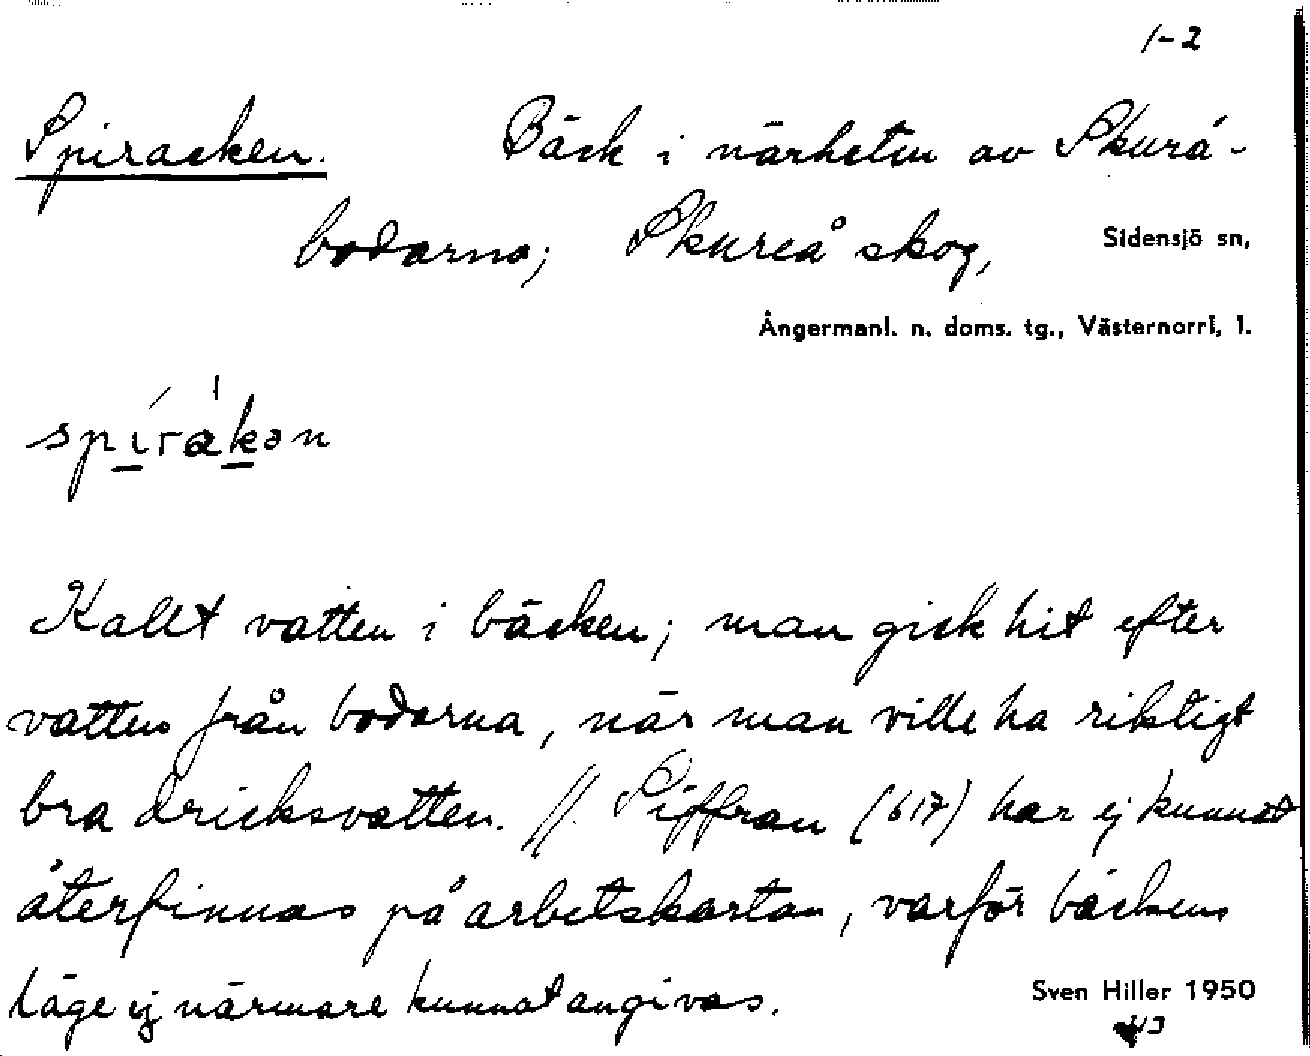 1-2
Spiracken. Bäck i närheten av Skurå-
bodarna; Skureå skog, Sidensjö sn,
Ångermanl. n. doms. tg., Västernorrl, l.
spìrákən
Kallt vatten i bäcken; man gick hit efter
vatten från bodarna, när man ville ha riktigt
bra dricksvatten. //. Siffran (617) har ej kunnat
återfinnas på arbetskartan, varför bäckens
läge ej närmare kunnat angivas.
Sven Hiller 1950